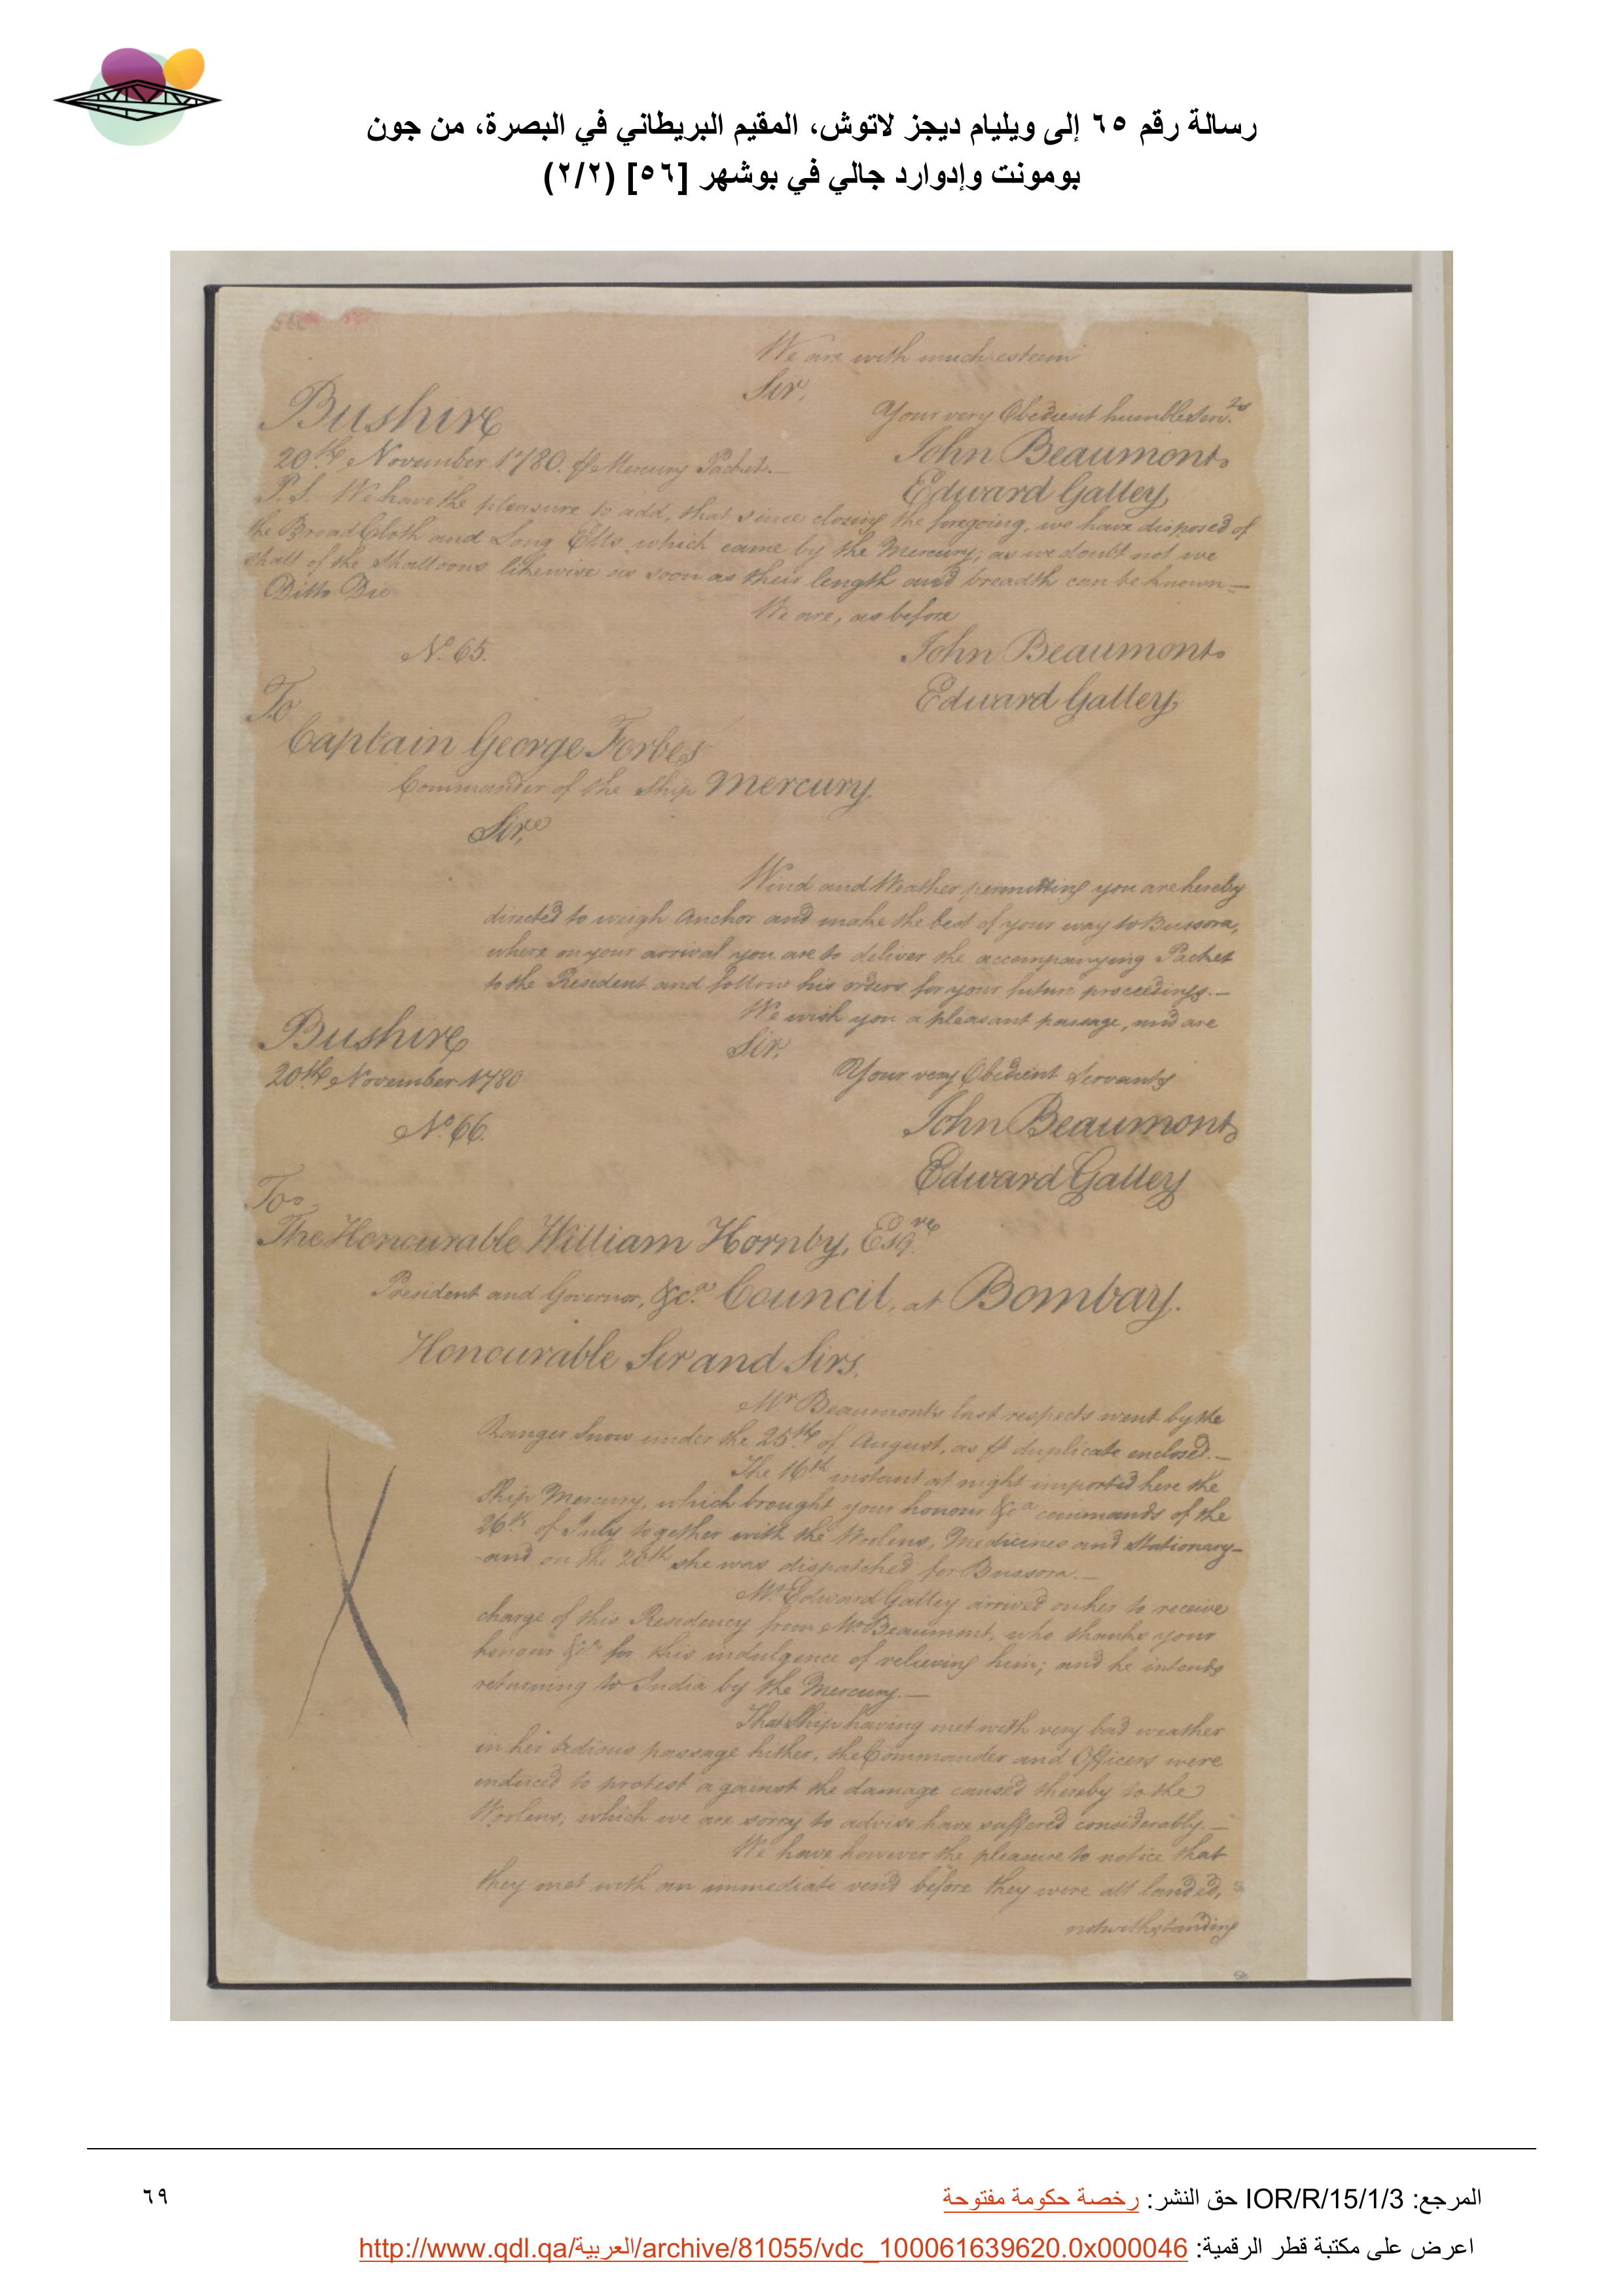 رسالة رقم ٦٥ إلى ويليام ديجز لاتوش، المقيم البريطاني في البصرة، من جون
بومونت وإدوارد جالي في بوشهر [٥٦] (٢/٢)
We are with much esteem
Sir,
Your very Obedient humble Serv.ts
Bushire
John Beaumont
20th November 1780. ⅌ Mercury Packet.—
Edward Galley
P.S. We have the pleasure to add, that since closing the foregoing, we have disposed of
the Broad Cloth and Long Ells which came by the Mercury; as we doubt not we
shall of the Shalloons likewise as soon as their length and breadth can be known—
Ditto Die
We are, as before
No. 65.
John Beaumont
Edward Galley
To
Captain George Forbes
Commander of the Ship Mercury.
Sir,
Wind and Weather permitting you are hereby
directed to weigh Anchor and make the best of your way to Bussora,
where on your arrival you are to deliver the accompanying Packet
to the Resident and follow his orders for your future proceedings.—
We wish you a pleasant passage, and are
Bushire
Sir,
20th November 1780
Your very Obedient Servants
No. 66.
John Beaumont
Edward Galley
To
The Honourable William Hornby, Esqre
President and Governor, &ca. Council, at Bombay.
Honourable Sir and Sirs,
Mr Beaumont's last respects went by the
Ranger Snow under the 25th of August, as ⅌ duplicate enclosed.—
The 16th instant at night imported here the
Ship Mercury, which brought your honour &ca commands of the
26th of July together with the Woolens, Medicines and Stationary—
and on the 20th she was dispatched for Bussora.—
Mr. Edward Galley arrived on her to receive
charge of this Residency from Mr Beaumont, who thanks your
honour &ca for this indulgence of relieving him; and he intends
returning to India by the Mercury.—
That Ship having met with very bad weather
in her tedious passage hither, the Commander and Officers were
induced to protest against the damage caused thereby to the
Woolens; which we are sorry to advise have suffered considerably.—
We have however the pleasure to notice that
they met with an immediate vend before they were all landed,
notwithstanding
المرجع: IOR/R/15/1/3 حق النشر: رخصة حكومة مفتوحة
٦٩
اعرض على مكتبة قطر الرقمية: http://www.qdl.qa/العربية/archive/81055/vdc_100061639620.0x000046